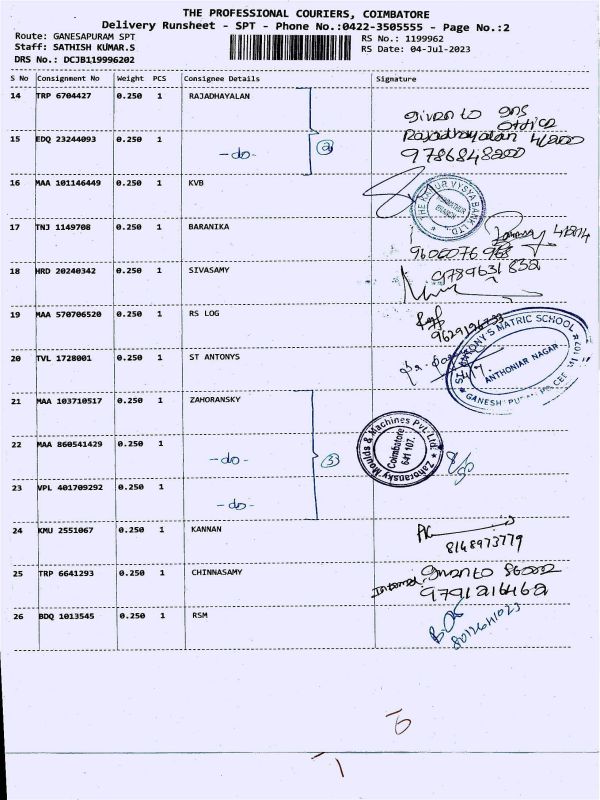 THE PROFESSIONAL COURIERS, COIMBATORE
Delivery Runsheet - SPT - Phone No.:0422-3505555 - Page No.:2
Route: GANESAPURAM SPT
RS No.: 1199962
Staff: SATHISH KUMAR.S
RS Date: 04-Jul-2023
DRS No.: DCJB119996202
S No Consignment No Weight PCS Consignee Details Signature
14 TRP 6704427 0.250 1 RAJADHAYALAN
given to
office
Rajadhayalan
15 EDQ 23244093 0.250 1 -do- 2
9786848200
16 MAA 101146449 0.250 1 KVB
THE KARUR VYSYA BANK LTD.
17 TNJ 1149708 0.250 1 BARANIKA
18 HRD 20240342 0.250 1 SIVASAMY
9789631832
19 MAA 570706520 0.250 1 RS LOG
20 TVL 1728001 0.250 1 ST ANTONYS
ST. ANTONY'S MATRIC SCHOOL
ANTHONIAR NAGAR
21 MAA 103710517 0.250 1 ZAHORANSKY
22 MAA 860541429 0.250 1 -do- 3
Zahoransky Moulds & Machines Pvt. Ltd.
Coimbatore
641 107.
23 VPL 401709292 0.250 1 -do-
24 KMU 2551067 0.250 1 KANNAN
8148973779
25 TRP 6641293 0.250 1 CHINNASAMY
9791216462
26 BDQ 1013545 0.250 1 RSM